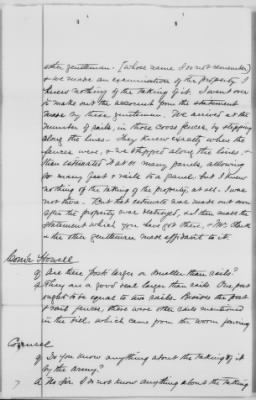 other gentleman. (whose name I do not remember)
& we made an examination of the property I
knew nothing of the taking of it. I went over
to make out the account from the statement
made by these gentlemen. We arrived at the
number of rails, in those cross fences, by stepping
along the lines. They knew exactly where the
fences were, & we stepped along the lines, &
then estimated it at so many panels, allowing
so many feet & rails to a panel. but I knew
nothing of the taking of the property, at all. I was
not there. But that estimate was made out soon
after the property was destroyed, & I then made the
statement which you have got there, & Mr. Clark
& the other gentleman made affidavit to it.
Com'r Howell
q Are these posts larger or smaller than rails?
a They are a good deal larger than rails. One post
ought to be equal to two rails. Besides the post
& rail fences, there were other rails mentioned
in the bill, which came from the worm fencing
Counsel
q Do you know anything about the taking of it
by the Army?
a No Sir I do not know anything about the taking
7